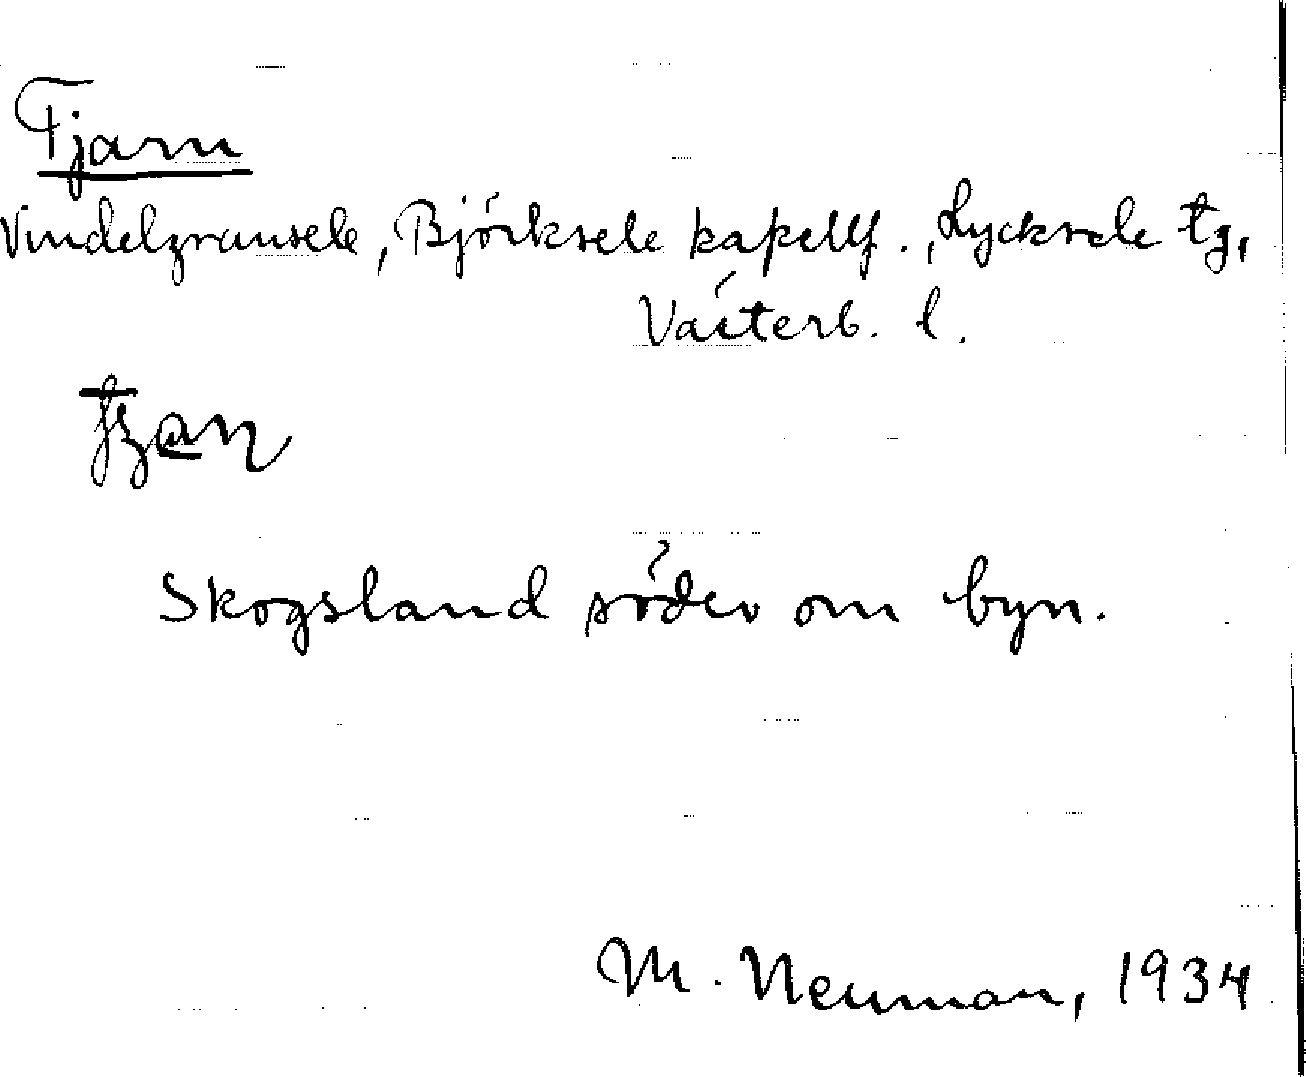 Tjarn
Vindelgransele, Björksele kapellf., Lycksele tg,
Västerb. l.
Skogsland söder om byn.
M. Neuman, 1934